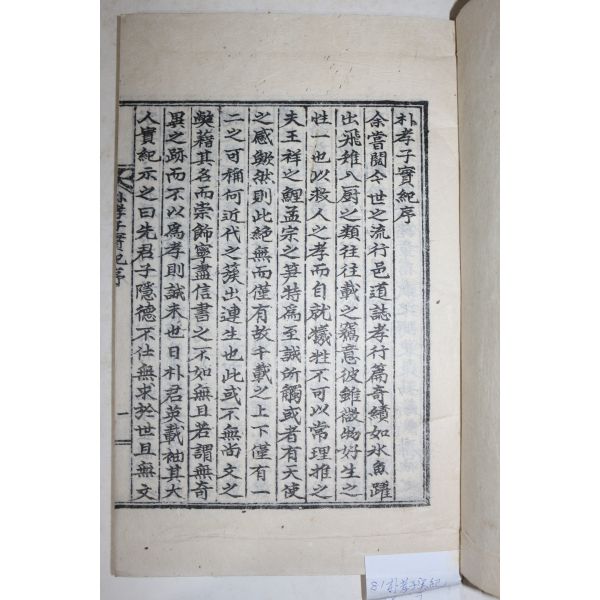 朴孝子實紀序
余嘗閱今世之流行邑道誌孝行篇奇績如氷魚躍
出飛雉入厨之類往往載之竊意彼雖微物好生之
性一也以救人之孝而自就犧牲不可以常理推之
夫王祥之鯉孟宗之笋特爲至誠所觸或者有天使
之感歟然則此絶無而僅有故千載之上下僅有一
二之可稱何近代之蔟出連生也此或不無尚文之
弊藉其名而崇飾寧盡信書之不如無且若謂無奇
異之跡而不以爲孝則誠末也日朴君英載袖其大
人實紀示之曰先君子隱德不仕無求於世且無文
朴孝子實紀序
一
81 朴孝子實紀